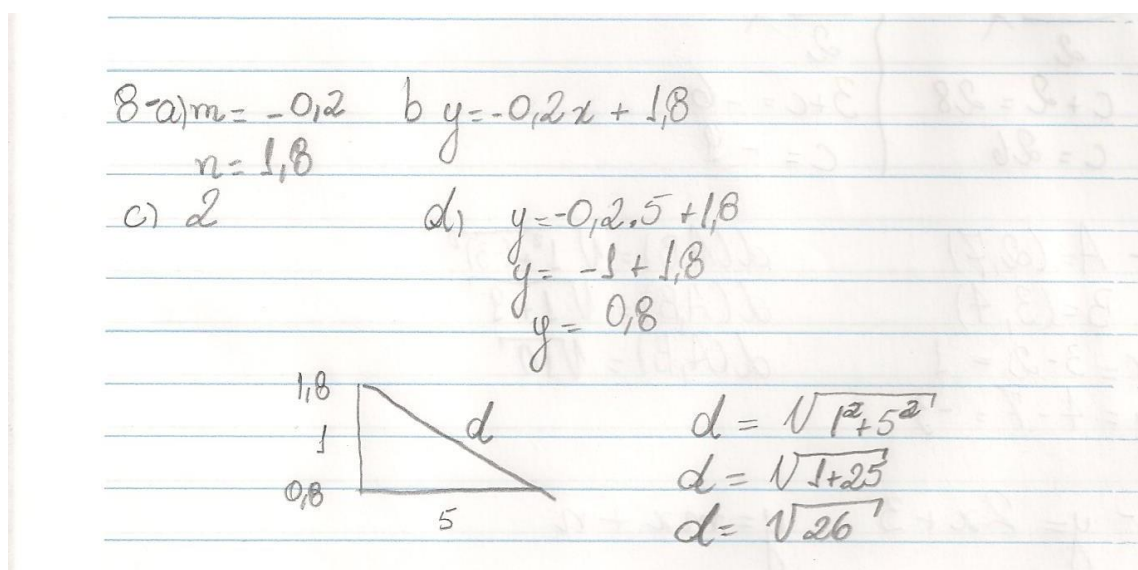 8-a) m = -0,2 b y = -0,2x + 1,8
n = 1,8
c) 2 d) y = -0,2.5 + 1,8
y = -1 + 1,8
y = 0,8
1,8
1
0,8
d
5
d = √1²+5²
d = √1+25
d = √26